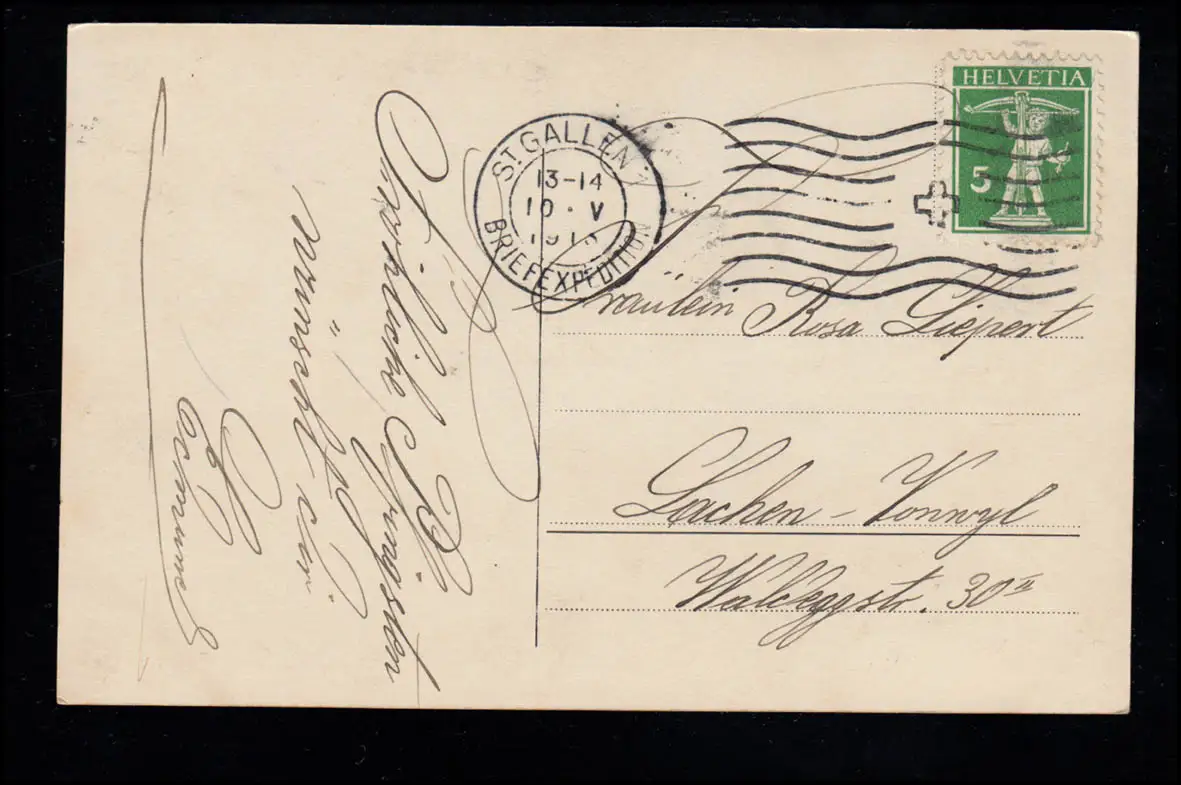 HELVETIA
5
ST. GALLEN 1
13-14
10·V
1913
BRIEFEXPEDITION
Fräulein Rosa Liepert
Lachen - Vonwyl
Waldeggstr. 30 II
Fröhliche Pfingsten
wünscht dir